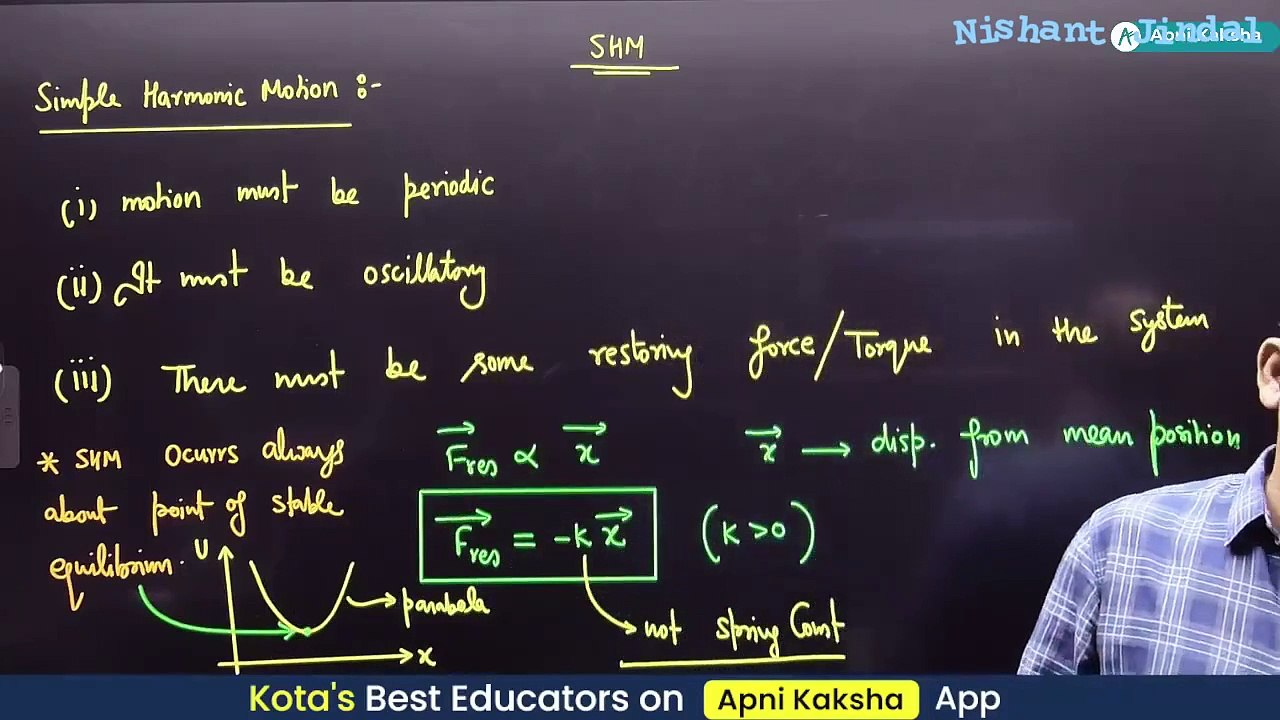 SHM
Nishant Jindal
Apni Kaksha
Simple Harmonic Motion :-
(i) motion must be periodic
(ii) It must be oscillatory
(iii) There must be some restoring force/Torque in the system
* SHM ocurrs always
about point of stable
equilibrium.
F⃗res ∝ x⃗
x⃗ → disp. from mean position
F⃗res = -k x⃗ (k>0)
U
→ parabola
x
→ not spring Const
Kota's Best Educators on Apni Kaksha App